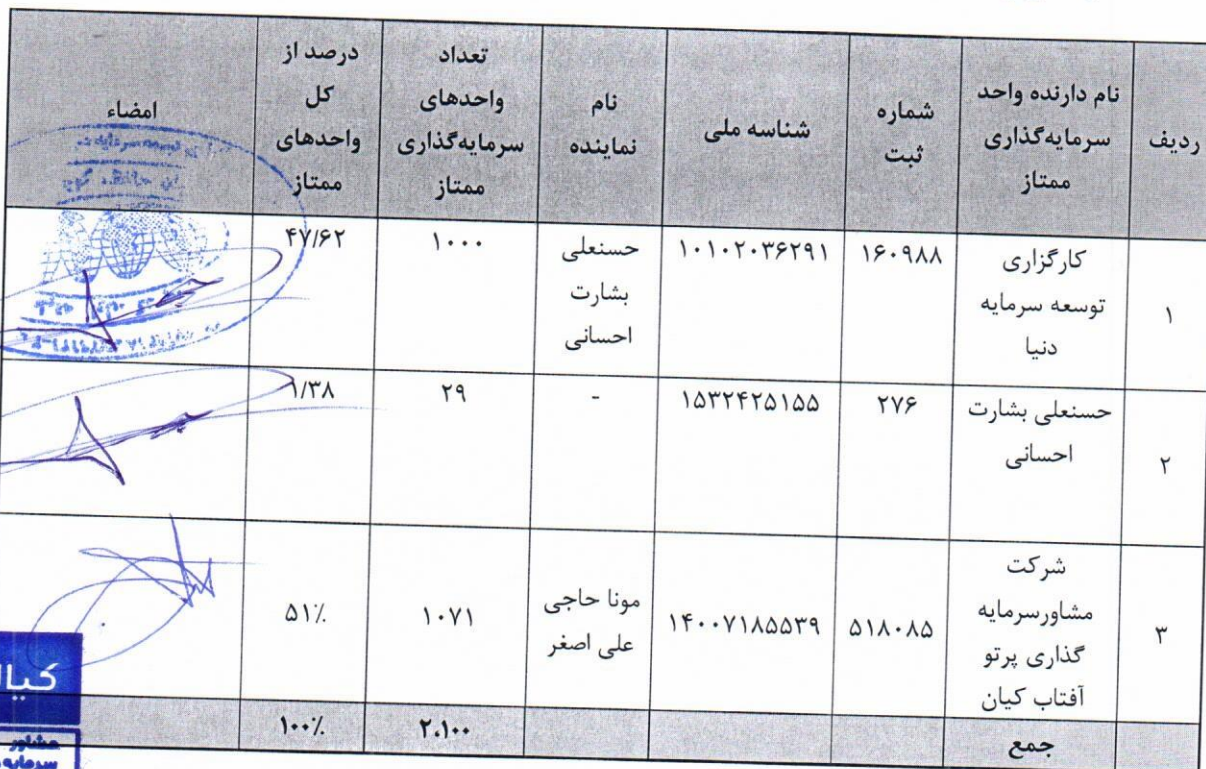 ردیف
نام دارنده واحد
سرمایه‌گذاری
ممتاز
شماره
ثبت
شناسه ملی
نام
نماینده
تعداد
واحدهای
سرمایه‌گذاری
ممتاز
درصد از
کل
واحدهای
ممتاز
امضاء
۱
کارگزاری
توسعه سرمایه
دنیا
۱۶۰۹۸۸
۱۰۱۰۲۰۳۶۲۹۱
حسنعلی
بشارت
احسانی
۱۰۰۰
۴۷/۶۲
۲
حسنعلی بشارت
احسانی
۲۷۶
۱۵۳۲۴۲۵۱۵۵
-
۲۹
۱/۳۸
۳
شرکت
مشاورسرمایه
گذاری پرتو
آفتاب کیان
۵۱۸۰۸۵
۱۴۰۰۷۱۸۵۵۳۹
مونا حاجی
علی اصغر
۱۰۷۱
۵۱٪
جمع
۲،۱۰۰
۱۰۰٪
مشاور